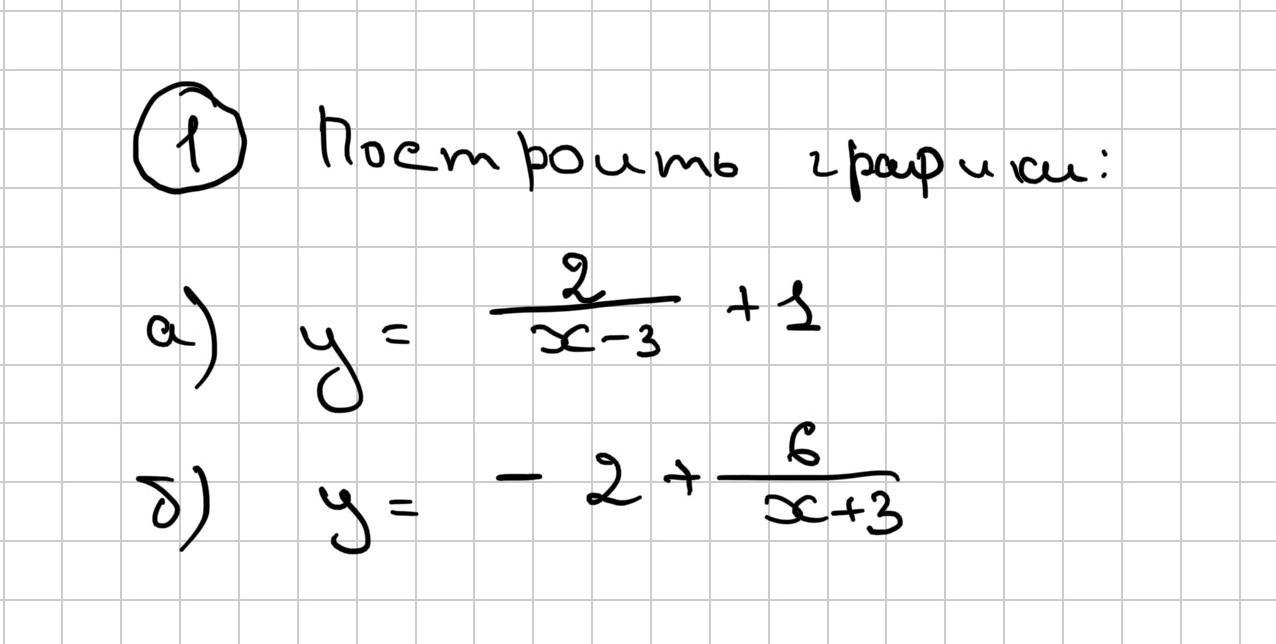 ① Построить графики:
а) y = 2/(x-3) + 1
б) y = - 2 + 6/(x+3)